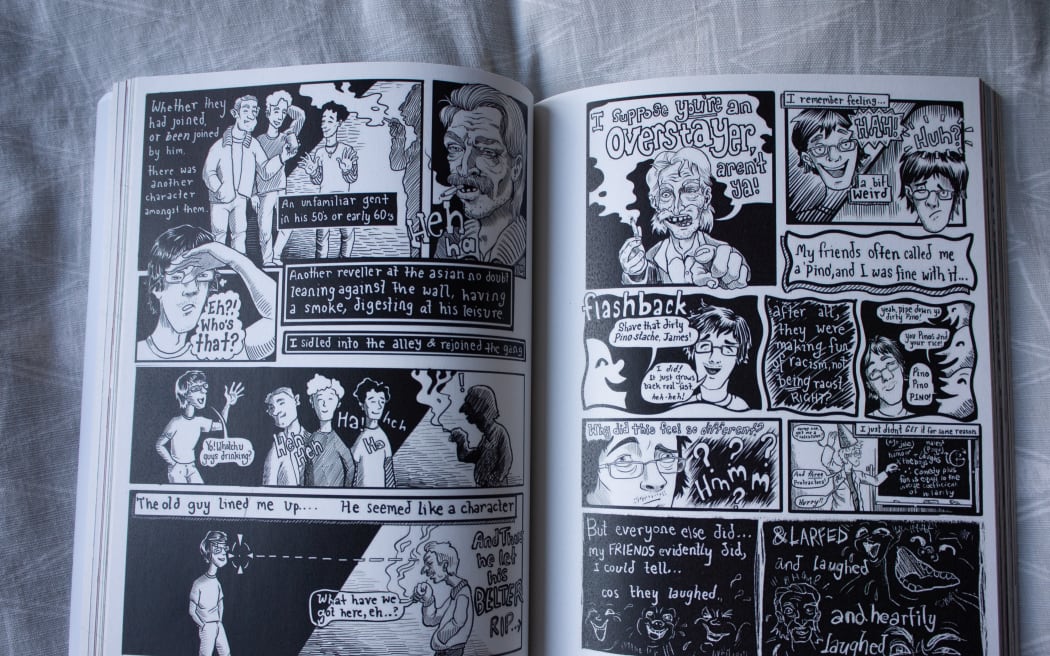 Whether they
had joined,
or been joined
by him.
there was
another
character
amongst them.
An unfamiliar gent
in his 50's or early 60's
Heh
ha
Eh?!
Who's
that?
Another reveller at the asian no doubt
leaning against the wall, having
a smoke, digesting at his leisure
I sidled into the alley & rejoined the gang
Yo! Whatchu
guys drinking?
Heh
Heh
Ha!
Ha
heh
!
The old guy lined me up.... He seemed like a character
What have we
got here, eh..?
And Then
he let
his
BELTER
RIP...
I suppose you're an
Overstayer,
aren't
ya!
I remember feeling...
HAH!
Huh?
a bit
weird
My friends often called me
a 'Pino', and I was fine with it...
flashback
Shave that dirty
Pino stache, James!
I did!
It just grows
back real fast
heh-heh!
after all,
they were
making fun
of racism, not
being racist
RIGHT?
yeah pipe down ya
dirty Pino!
you Pinos and
your rice!
Pino
Pino
PINO!
Why did this feel so different?
? ? ?
Hmmm
?
I just didn't GET it for some reason
And three
Protractors!
Hurry!!
Comedy plus
fun is equal to the
of hilarity
But everyone else did...
my FRIENDS evidently did,
I could tell...
cos they laughed.
& LARFED
and laughed
and heartily
laughed